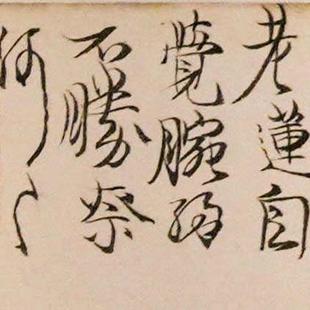 老蓮自
覺腕弱
不勝奈
何〻